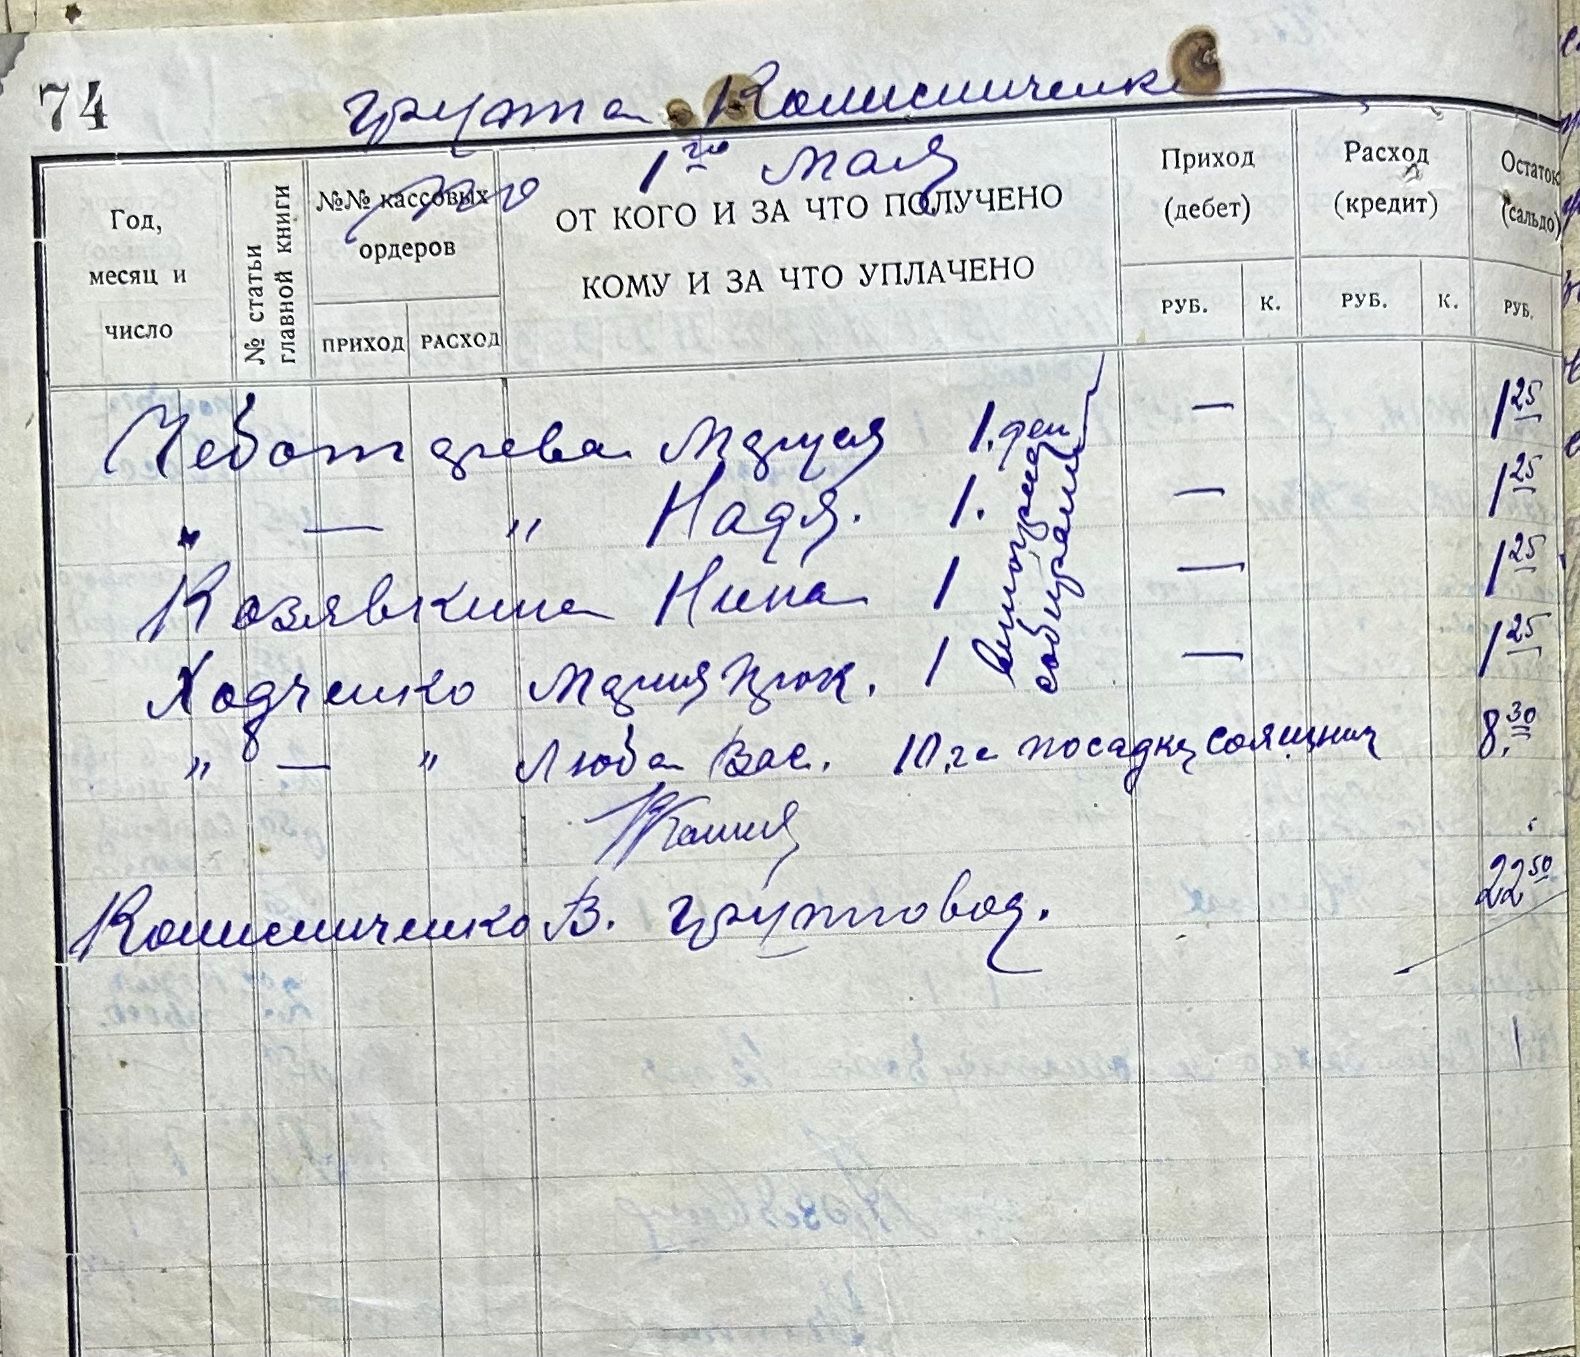 74 группа Колисниченко
1го мая
Год, месяц и число
№ статьи главной книги
№№ кассовых ордеров
ПРИХОД РАСХОД
ОТ КОГО И ЗА ЧТО ПОЛУЧЕНО
КОМУ И ЗА ЧТО УПЛАЧЕНО
Приход (дебет)
РУБ. К.
Расход (кредит)
РУБ. К.
Остаток (сальдо)
РУБ.
Чеботарева Маруся 1. ден — 1 25
" — " Надя. 1. — 1 25
Козявкина Нина 1 — 1 25
Ходченко Мария Прок. 1 — 1 25
виноград
собирали
" — " Люба Вас. 10 га посадку 8.30
Колисниченко В. групповод. 22 50